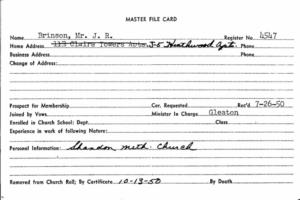 MASTER FILE CARD
Name Brinson, Mr. J. R. Register No. 4547
Home Address 113 Claire Towers Apts. J-5 Heathwood Apt. Phone
Business Address Phone
Change of Address:
Prospect for Membership Cor. Requested Rec'd. 7-26-50
Joined by Vows Minister In Charge Gleaton
Enrolled in Church School: Dept. Class
Experience in work of following Nature:
Personal Information: Shandon Meth. Church
Removed from Church Roll; By Certificate 10-13-50 By Death